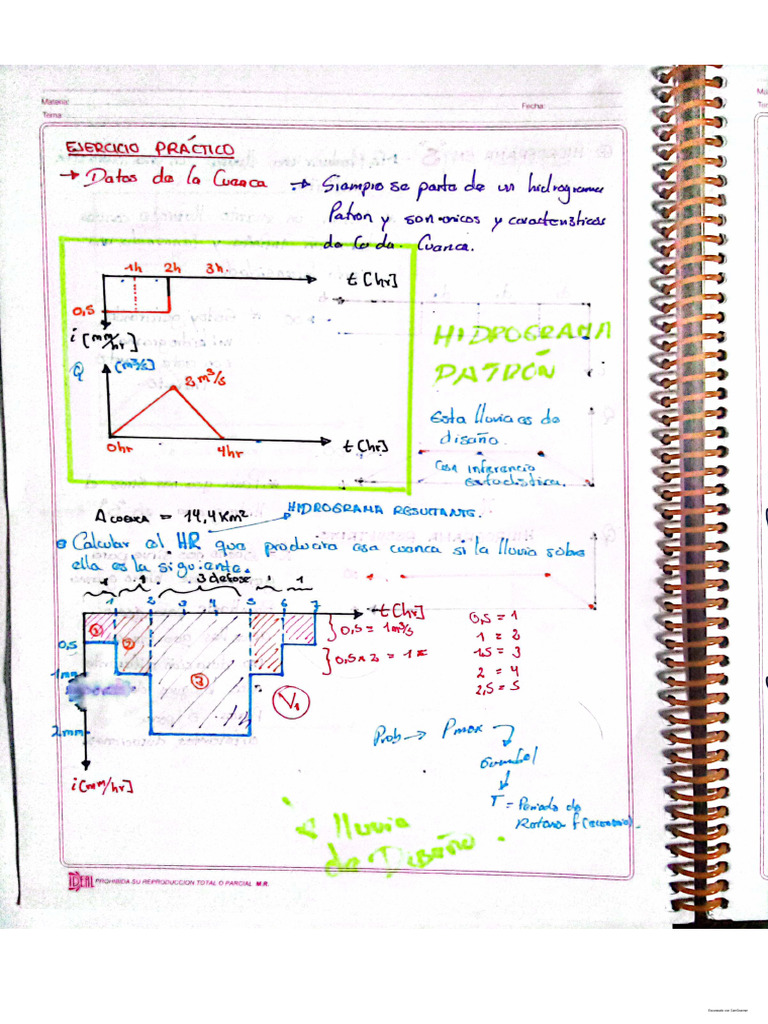 Materia:
Fecha:
Tema
EJERCICIO PRÁCTICO
→ Datos de la Cuenca → Siempre se parte de un hidrograma
Patron y son unicos y caracteristicas
de Cada Cuenca.
1h 2h 3h t [hr]
0,5
i [mm/hr]
Q [m³/s]
2 m³/s
0hr 4hr t [hr]
HIDROGRAMA
PATRÓN
Esta lluvia es de
diseño.
Con inferencia
estadistica.
A cuenca = 14,4 Km²
HIDROGRAMA RESULTANTE.
Calcular el HR que producira esa cuenca si la lluvia sobre
ella es la siguiente.
1 1 3 1 1
1 2 3 4 5 6 7 t [hr]
0,5
1mm
2mm
i [mm/hr]
① ② ③
V1
0,5 = 1m³/s
0,5 x 2 = 1
0,5 = 1
1 = 2
1,5 = 3
2 = 4
2,5 = 5
Prob → Pmax
Gumbel
T = Periodo de
Retorno f(
lluvia
de Diseño.
IDEAL PROHIBIDA SU REPRODUCCION TOTAL O PARCIAL M.R.
Escaneado con CamScanner